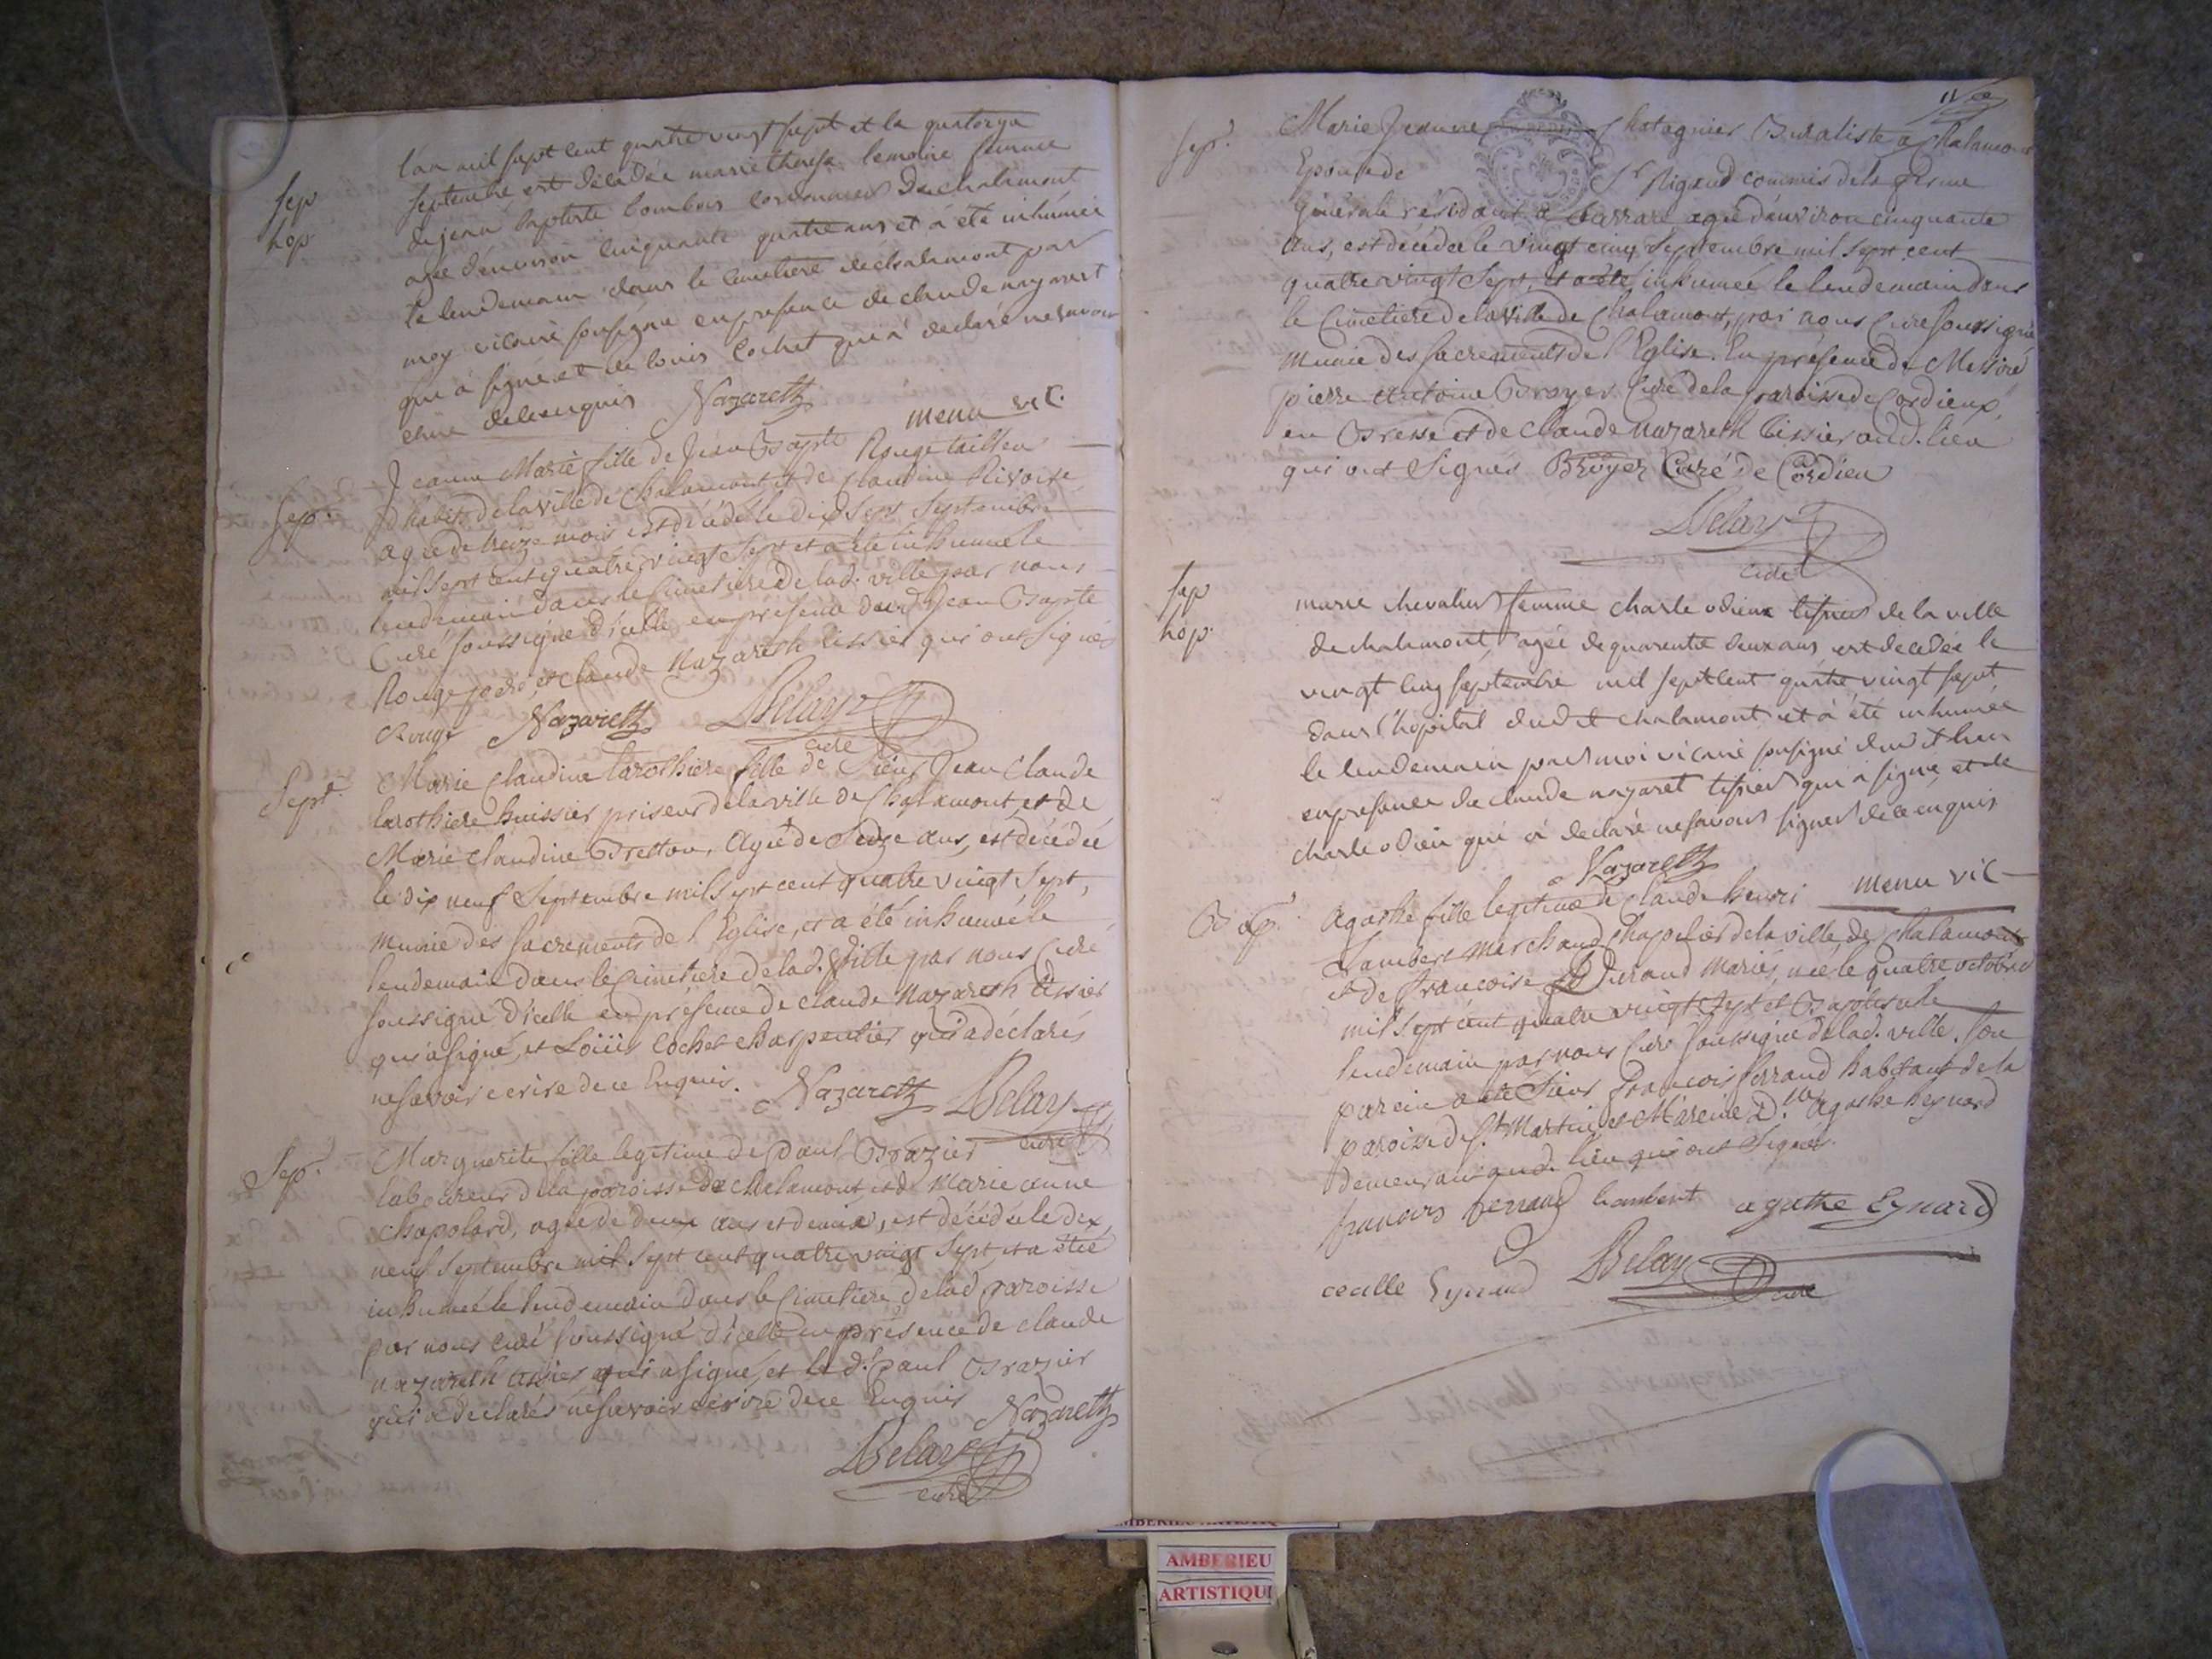 Sep
hop
L'an mil sept cent quatre vingt sept et la quatorze
septembre est décédée marie therese lemoine femme
de jean baptiste cordonnier de chalamont
agée d'environ cinquante quatre ans et à été inhumée
le lendemain dans le cimetiere de chalamont par
moy vicaire sousigné en presence de claude nazaret
qui à signé et de louis Cochet qui à declaré ne savoir
de ce enquis Nazareth menu vic.
Sep.
Jeanne Marie fille de Jean Bapte Rouge tailleur
habitt de la ville de Chalamont et de Claudine Rivoire
agée de treize mois est décédée le dix Sept Septembre
mil sept cent quatre vingt sept et a été inhumée le
lendemain dans le Cimetiere de lad. ville par nous
Curé soussigné d'icelle en présence dud. Jean Bapte
Rouge pere, et claude Nazareth tissier qui ont signés
Rouge Nazareth Belay
curé
Sept.
Marie Claudine larothiere fille de Sieur Jean Claude
larothiere huissier priseur de la ville de Chalamont, et de
Marie Claudine Bretton, Agée de Seize ans, est décédée
le dix neuf Septembre mil sept cent quatre vingt sept,
munie des sacrements de l'Eglise, et a été inhumée le
lendemain dans le Cimetiere de lad. ville par nous Curé
soussigné d'icelle en présence de claude Nazareth tissier
qui a signé, et Loüis Cochet charpentier qui a déclarés
ne savoir ecrire de ce Enquis. Nazareth Belay
curé
Sep.
Marguerite fille legitime de Paul Brazier
laboureur de la paroisse de Chalamont et de Marie anne
Chapolard, agée de deux ans et demie, est décédée le dix
neuf Septembre mil sept cent quatre vingt sept et a étée
inhumée le lendemain dans le Cimetiere de lad paroisse
par nous curé soussigné d'icelle en présence de claude
nazareth tissier qui a signé, et le d. Paul Brazier
qui a déclarés ne savoir ecrire de ce Enquis Nazareth
Belay
curé
11
Sep.
Marie Jeanne Chatagnier Buraliste a Chalamont
Epouse de Sr Rigaud commis de la ferme
générale résidant a agée d'environ cinquante
ans, est décédée le vingt cinq Septembre mil sept cent
quatre vingt Sept, et a été inhumée le lendemain dans
le Cimetiere de la ville de Chalamont, par nous Curé soussigné
munie des sacrements de l'Eglise. En présence de Messire
pierre Antoine Broyer Curé de la paroisse de Cordieux,
en Bresse et de Claude Nazareth tissier aud. lieu
qui ont Signés Broyer Curé de Cordieu
Belay
curé
Sep
hop.
marie chevalier femme charle odieux tisier de la ville
de chalamont agée de quarente deux ans est décédée le
vingt cinq septembre mil sept cent quatre vingt sept
dans l'hopital dudit chalamont et à été inhumée
le lendemain par moi vicaire sousigné dudit lieu
en presence de claude nazaret tisier qui à signé et de
charle odieu qui à declaré ne savoir signer de ce enquis
Nazareth menu vic
Bap.
Agathe fille legitime de Claude henri
Lambert marchand Chapelier de la ville de Chalamont
et de francoise Durand mariés, née le quatre octobre
mil sept cent quatre vingt sept et Baptisée le
lendemain par nous Curé soussigné de lad. ville. Son
parein a été Sieur francois ferrand habitant de la
paroisse de St Martin, et Mareine Dlle Agathe heynard
demeurant aud. lieu qui ont Signés.
francois ferrand lambert agathe Eynard
cecille Eynard Belay
curé
AMBERIEU
ARTISTIQU